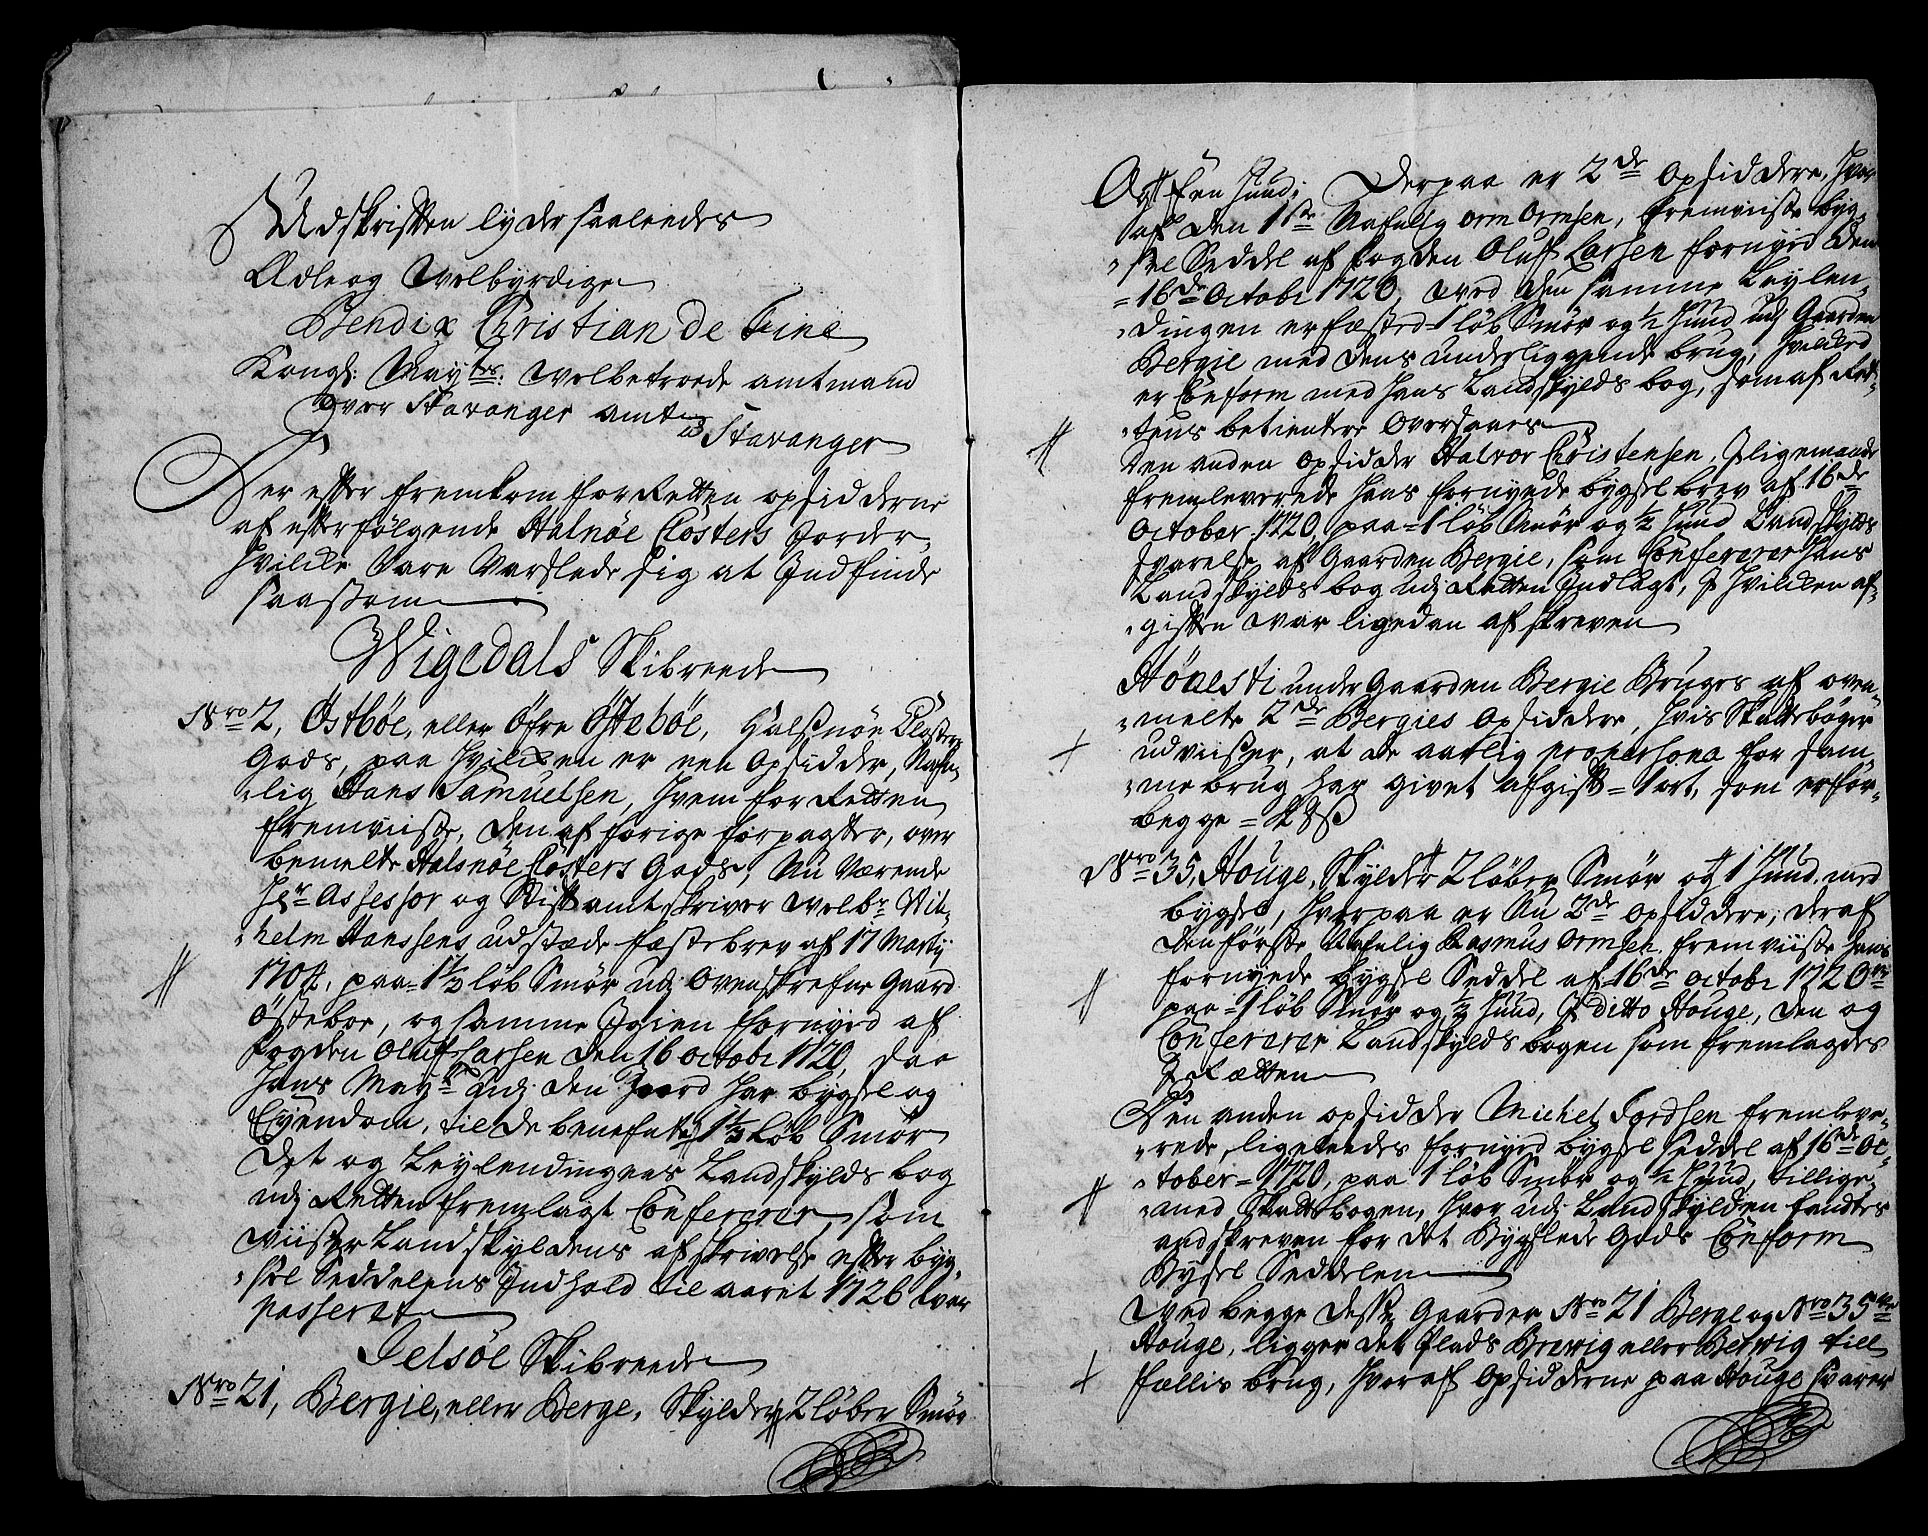 Udskriften lyder saaleedes
Ædle og Welbyrdige
Bendix Christian de Fine
Kongl: Mayts: welbetroede amtmand
over Stavanger amt
Stavanger
Der efter fremkom for Retten opsidderne
af efterfølgende Halsnøe Closters Jorder,
hvilke vare varslede sig at Indfinde
saasom
Wigedals Skibreede
Nro 2, Østbøe, eller Øfre Østebøe, Halsnøe Closters
Gods, paa hvilken er een Opsidder, Nafn-
lig Hans Samuelsen, hvem for Retten
fremviiste, den af forige forpagter, over
bemelte Halsnøe Closters Gods, Nu Værende
Hr Assessor og Stiftamtskriver welbr Wil-
helm Hanssens udstæde fæstebrev af 17 Martij
1704, paa 1½ løb Smør udj Ovenskrefne Gaard
Østeboe, og samme Igien fornyed af
fogden Oluf Larsen den 16 octobr 1720, saa
hans Mayt udj den Jord har bygsel og
Eyendom, til de benefnte 1½ løb Smør
Det og Leylendingens Landskylds bog
udj Retten fremlagt Confererer, som
viiser Landskyldens afskrivelse efter byg-
sel Seddelens Indhold til aaret 1726 war
passeret
Jelsøe Skibreede
Nro 21, Bergie, eller Berge, Skylder 2 løber Smør
Og en huud; Derpaa er 2de Opsiddere, hvor
af den 1ste Nafnlig Orm Ormsen, fremviiste byg-
sel Seddel af fogden Oluff Larsen fornyed den
16de Octobr 1720, wed den samme Leylen-
dingen er fæsted 1 løb Smør og ½ huud udj Gaarden
Bergie med dens underliggende brug, hvilked
er Conform med hans Landskylds bog, som af Ret-
tens betientere Oversaaes
Den anden Opsidder Halvor Christensen, Iligemaade
fremleverede hans fornyede bygsel brev af 16de
October 1720, paa 1 løb Smør og ½ huud Landskylds
svarelse af Gaarden Bergie, som Confererer hans
Landskylds bog udj Retten Indlagt, I hvilken af-
giften war ligedan afskreven
Høaesti under Gaarden Bergie Bruges af oven-
melte 2de Bergies Opsiddere, hvis Skattebøger
udviiser, at de aarlig pro persona for sam-
me brug har givet afgift 1 ort, som er for
begge
Nro 35, Houge, Skylder 2 løber Smør og 1 huud med
bygsel, hvorpaa er Nu 2de Opsiddere, deraf
den første Nafnlig Rasmus Ormsen fremviiste hans
fornyede Bygsel Seddel af 16de octobr 1720
paa 1 løb Smør og ½ huud, I ditto Houge, den og
Confererer Landskylds bogen som fremlagdes
I Rætten
Den anden opsidder Michel Jordsen fremleve-
rede ligeleedes fornyed bygsel seddel af 16de Oc-
tober 1720, paa 1 løb Smør og ½ huud, tillige-
med Skattebogen, hvor udj Landskylden fandtes
andskreven for det Bygslede Gods Conform
Bygsel Seddelen
Wed begge disse Gaarder Nro 21 Berge og Nro 35
Houge, ligger det Plads Brewig eller Berwig till
fællis brug, hvoraf Opsidderne paa Houge svarer